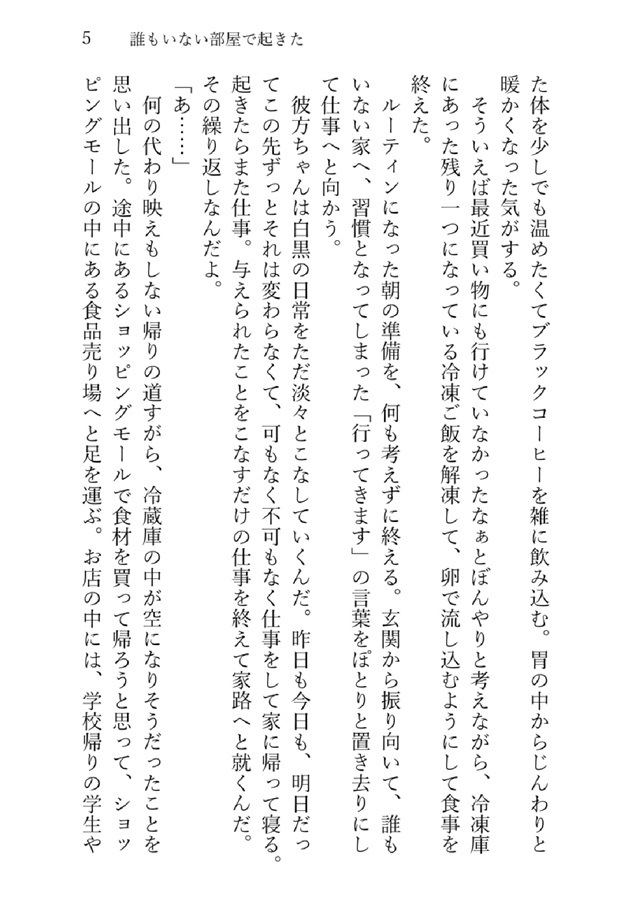 5 誰もいない部屋で起きた
た体を少しでも温めたくてブラックコーヒーを雑に飲み込む。胃の中からじんわりと
暖かくなった気がする。
そういえば最近買い物にも行けていなかったなぁとぼんやりと考えながら、冷凍庫
にあった残り一つになっている冷凍ご飯を解凍して、卵で流し込むようにして食事を
終えた。
ルーティンになった朝の準備を、何も考えずに終える。玄関から振り向いて、誰も
いない家へ、習慣となってしまった「行ってきます」の言葉をぽとりと置き去りにし
て仕事へと向かう。
彼方ちゃんは白黒の日常をただ淡々とこなしていくんだ。昨日も今日も、明日だっ
てこの先ずっとそれは変わらなくて、可もなく不可もなく仕事をして家に帰って寝る。
起きたらまた仕事。与えられたことをこなすだけの仕事を終えて家路へと就くんだ。
その繰り返しなんだよ。
「あ……」
何の代わり映えもしない帰りの道すがら、冷蔵庫の中が空になりそうだったことを
思い出した。途中にあるショッピングモールで食材を買って帰ろうと思って、ショッ
ピングモールの中にある食品売り場へと足を運ぶ。お店の中には、学校帰りの学生や